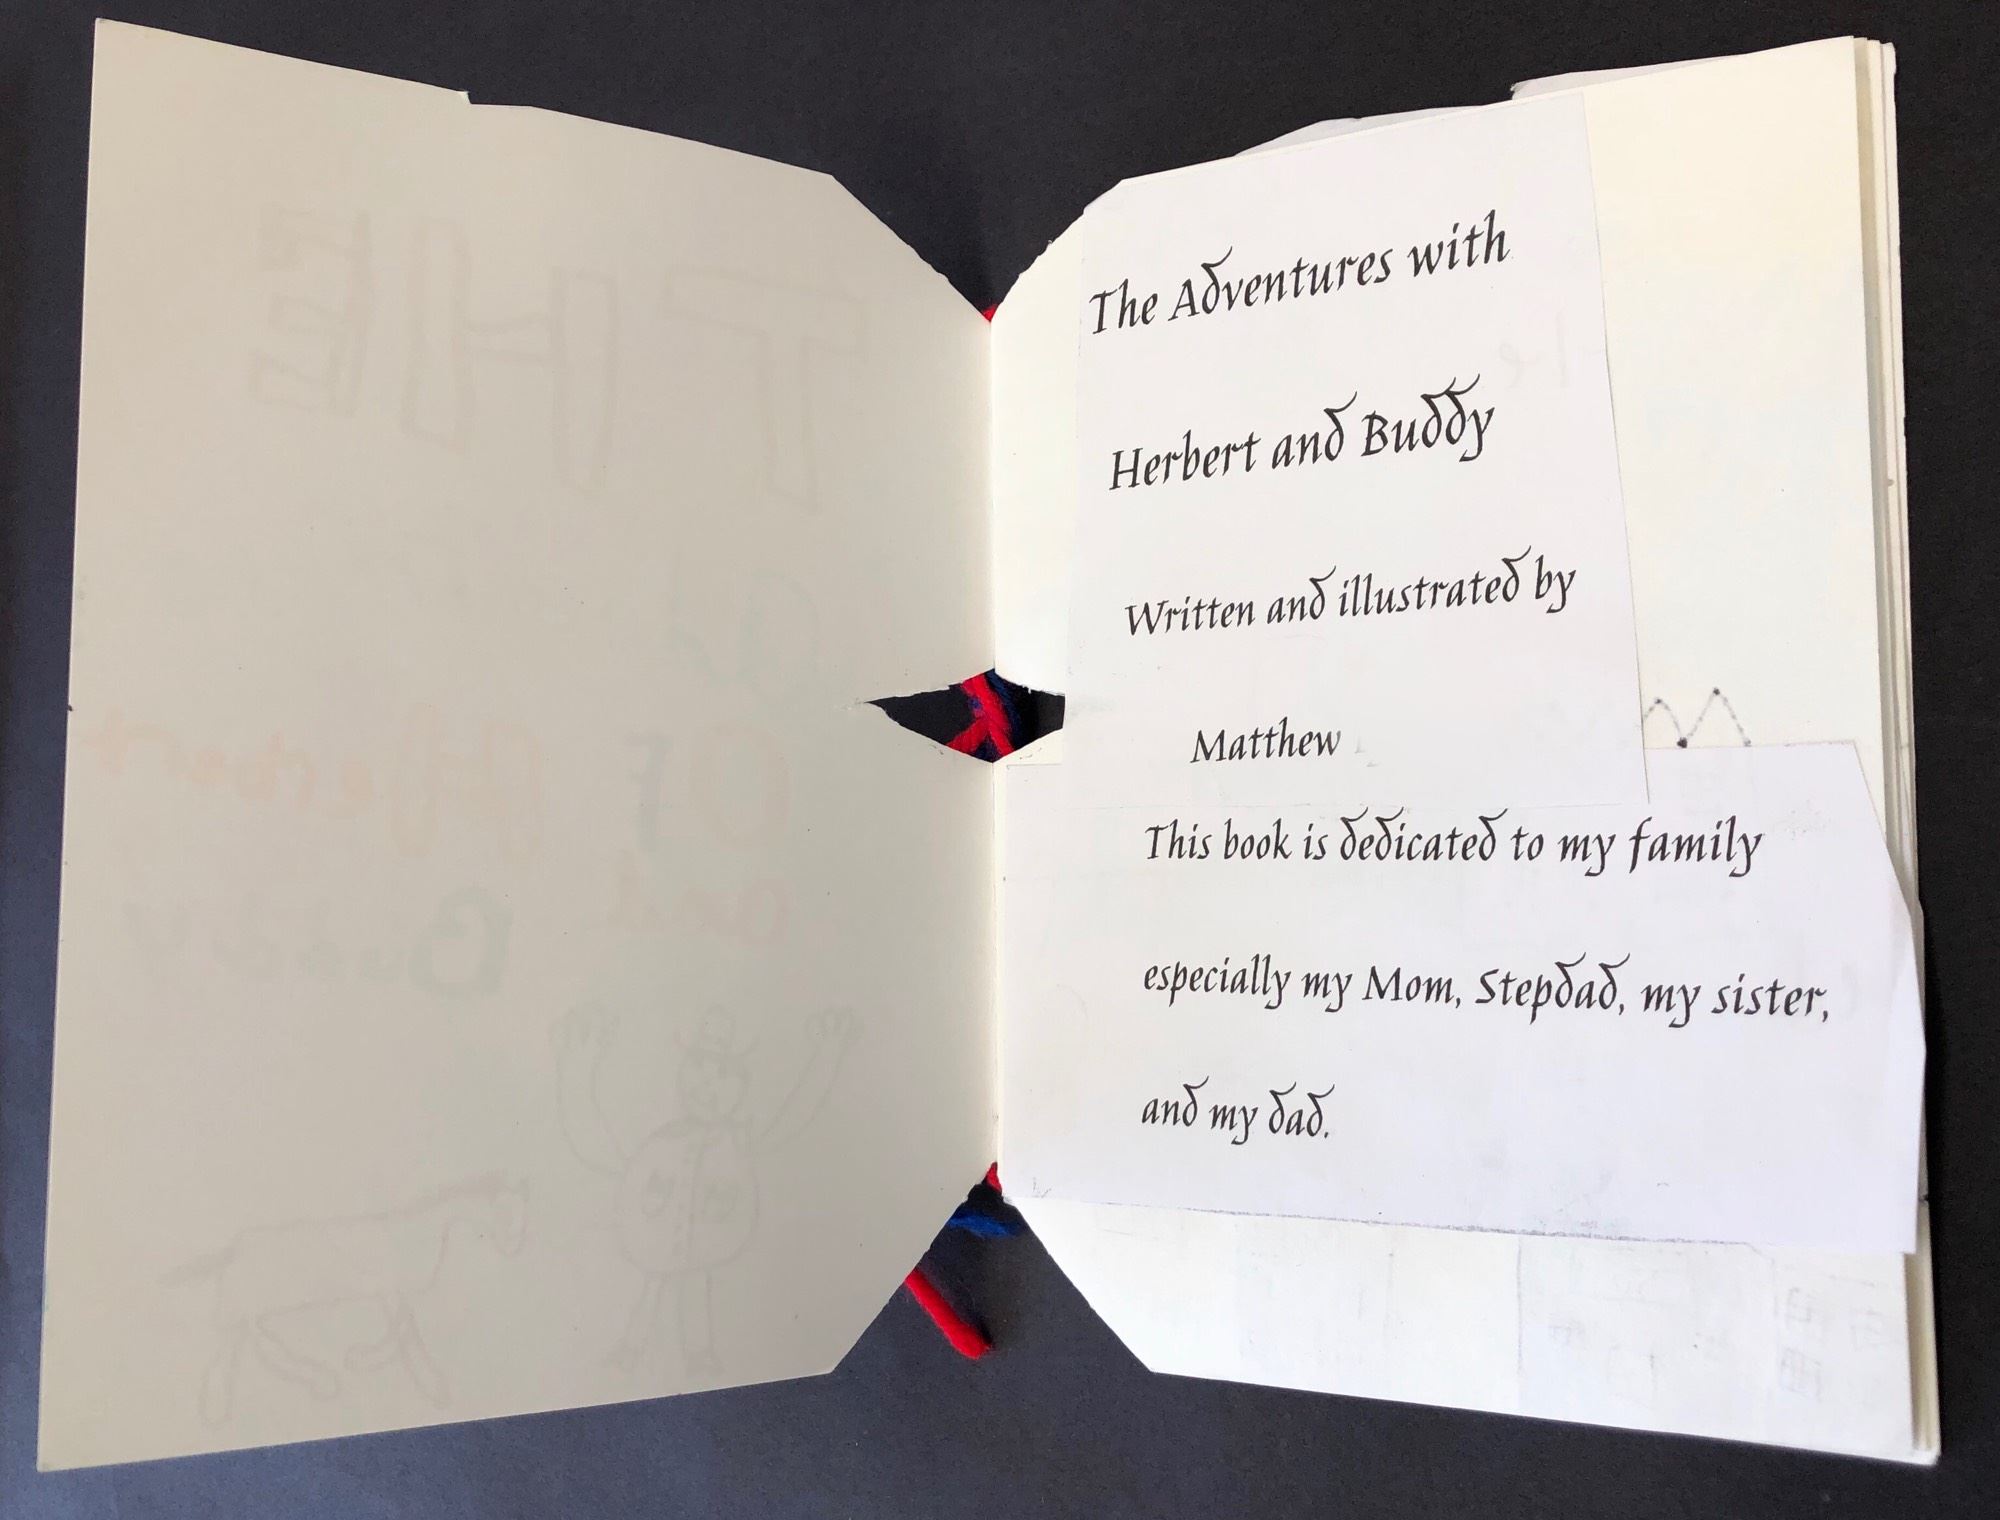 The Adventures with
Herbert and Buddy
Written and illustrated by
Matthew
This book is dedicated to my family
especially my Mom, Stepdad, my sister,
and my dad.